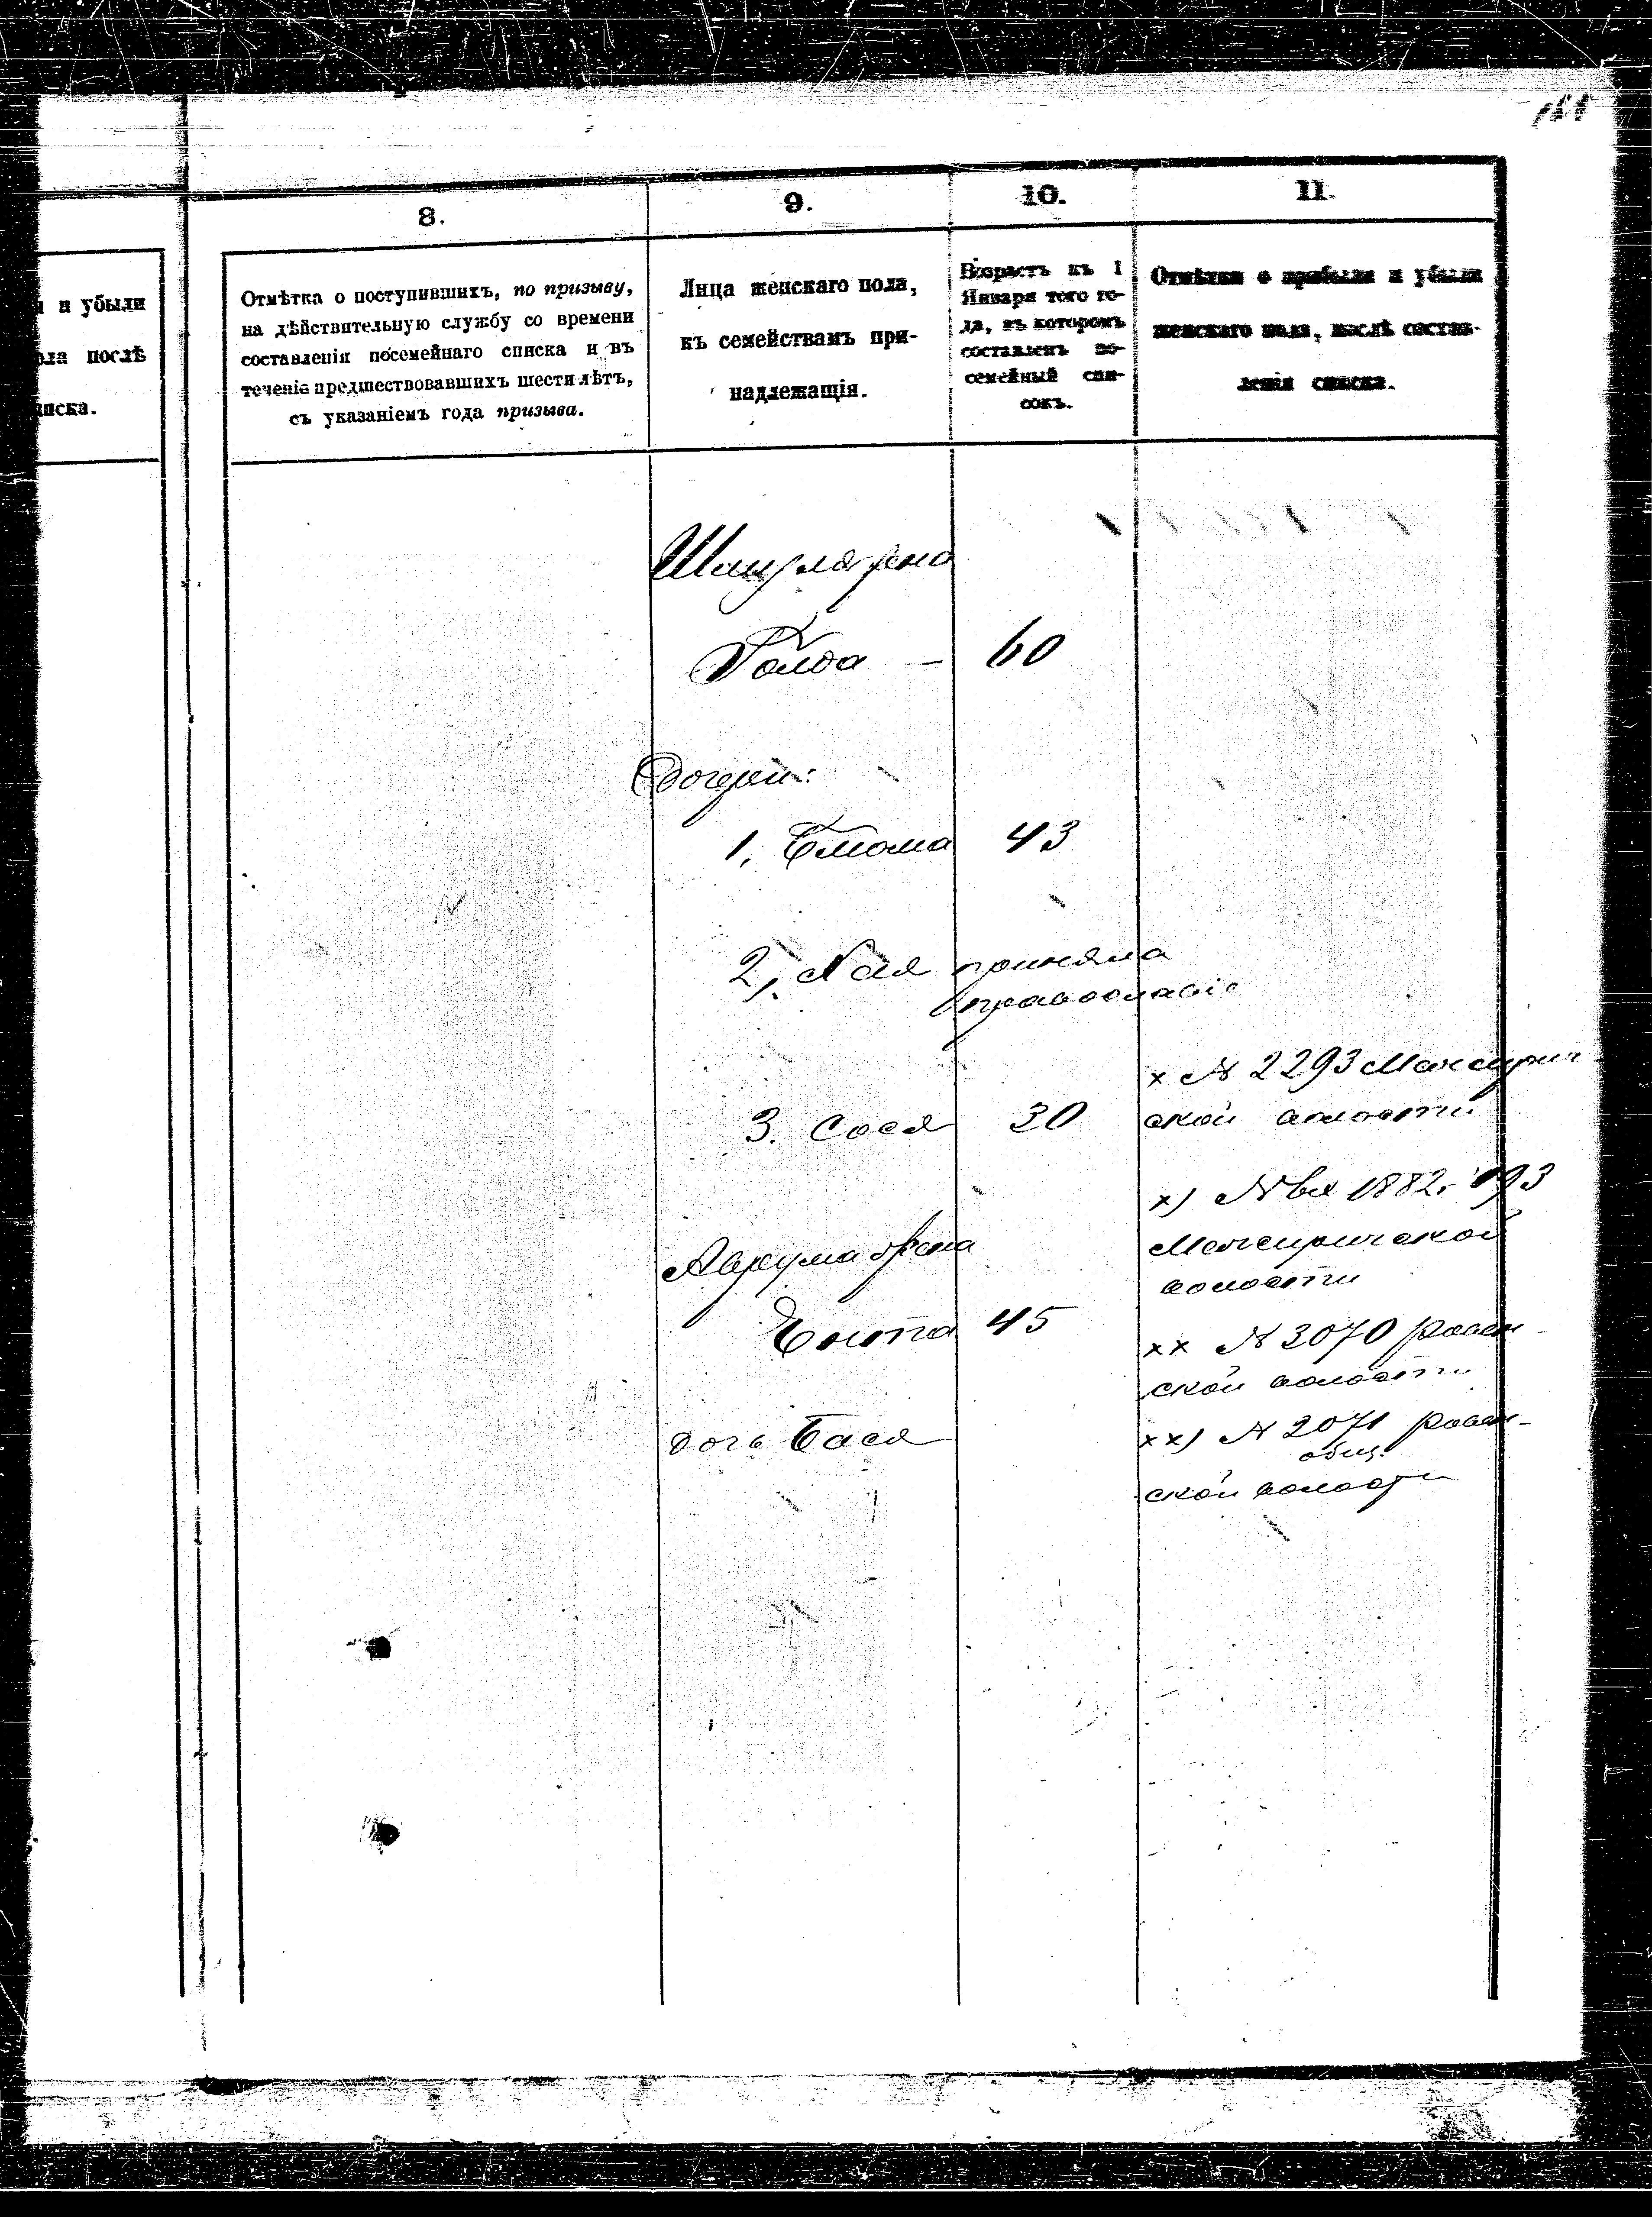 8.
9.
10.
11.
и убыли
ола послѣ
писка.
Отмѣтка о поступившихъ, по призыву,
на дѣйствительную службу со времени
составленія посемейнаго списка и въ
теченіе предшествовавшихъ шести лѣтъ,
съ указаніемъ года призыва.
Лица женскаго пола,
къ семействамъ при-
надлежащія.
Возрастъ къ 1
Января того го-
да, въ которомъ
составленъ по-
семейный спи-
сокъ.
Отмѣтки о прибыли и убыли
женскаго пола, послѣ состав-
ленія списка.
жена
Голда — 60
дочери:
1. Блюма 43
2, Хая приняла
православіе
х № 2293 Межирич-
3. Сося 30 ской волости
х) № 1882. 193
Межиричской
волости
Аврума жена
Ента 45
хх № 3070
ской волости
дочь Бася
хх) № 2071
общ.
ской волости